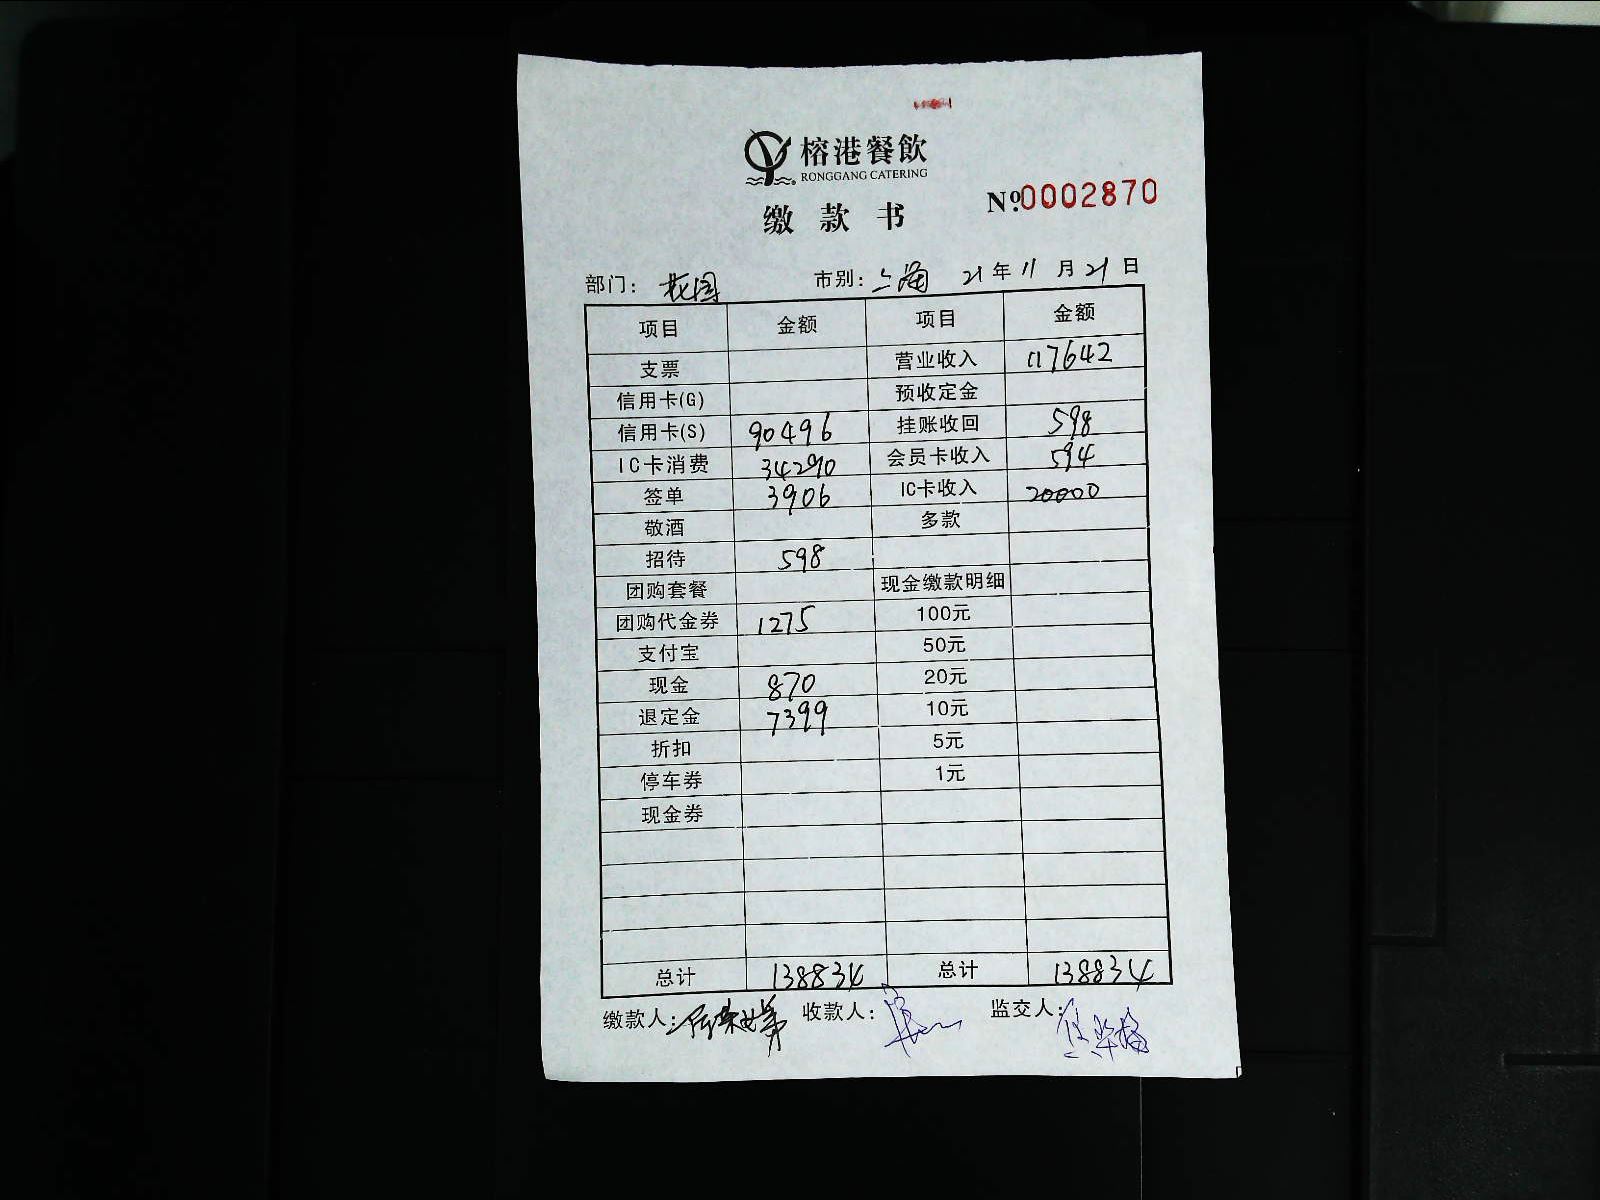 榕港餐飲
RONGGANG CATERING
№0002870
缴款书
部门：花园 市别：上海 21年11月21日
项目 金额 项目 金额
支票 营业收入 117642
信用卡(G) 预收定金
信用卡(S) 90496 挂账收回 598
IC卡消费 34290 会员卡收入 594
签单 3906 IC卡收入 20000
敬酒 多款
招待 598
团购套餐 现金缴款明细
团购代金券 1275 100元
支付宝 50元
现金 870 20元
退定金 7399 10元
折扣 5元
停车券 1元
现金券
总计 138834 总计 138834
缴款人： 收款人： 监交人：